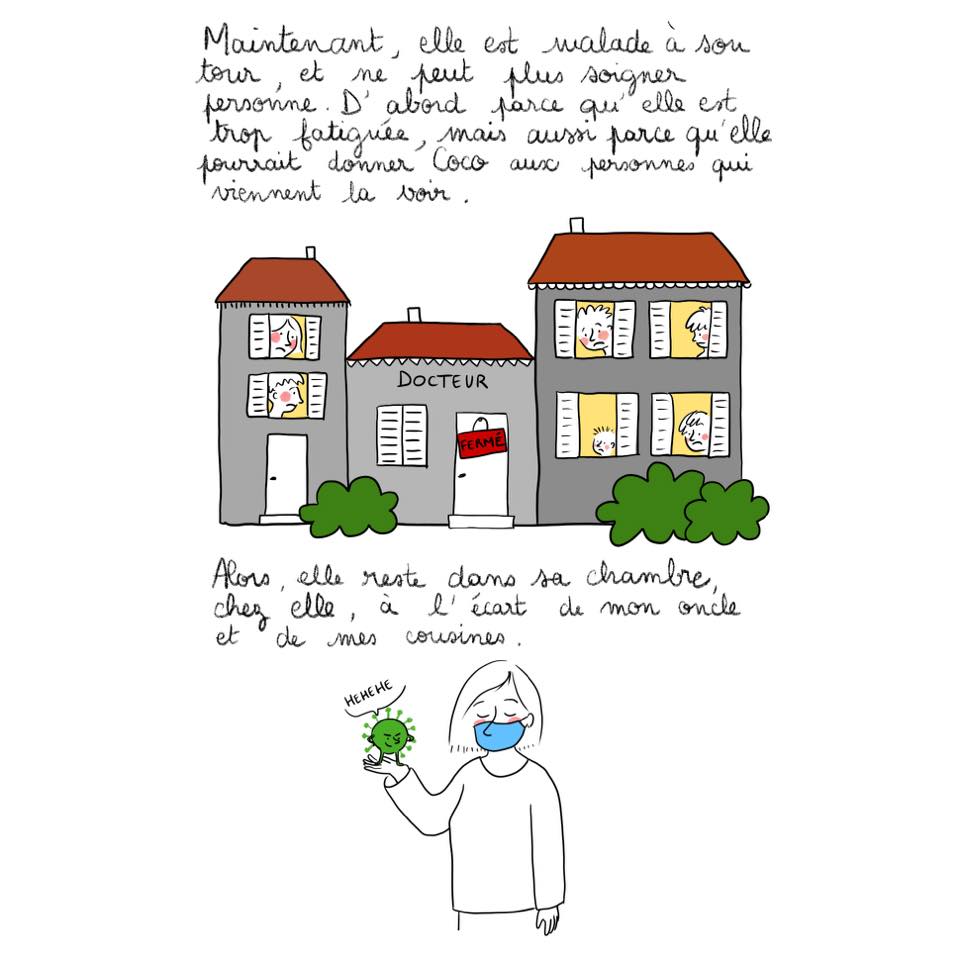 Maintenant, elle est malade à son
tour, et ne peut plus soigner
personne. D'abord parce qu'elle est
trop fatiguée, mais aussi parce qu'elle
pourrait donner Coco aux personnes qui
viennent la voir.
DOCTEUR
FERMÉ
Alors, elle reste dans sa chambre,
chez elle, à l'écart de mon oncle
et de mes cousines.
HEHEHE